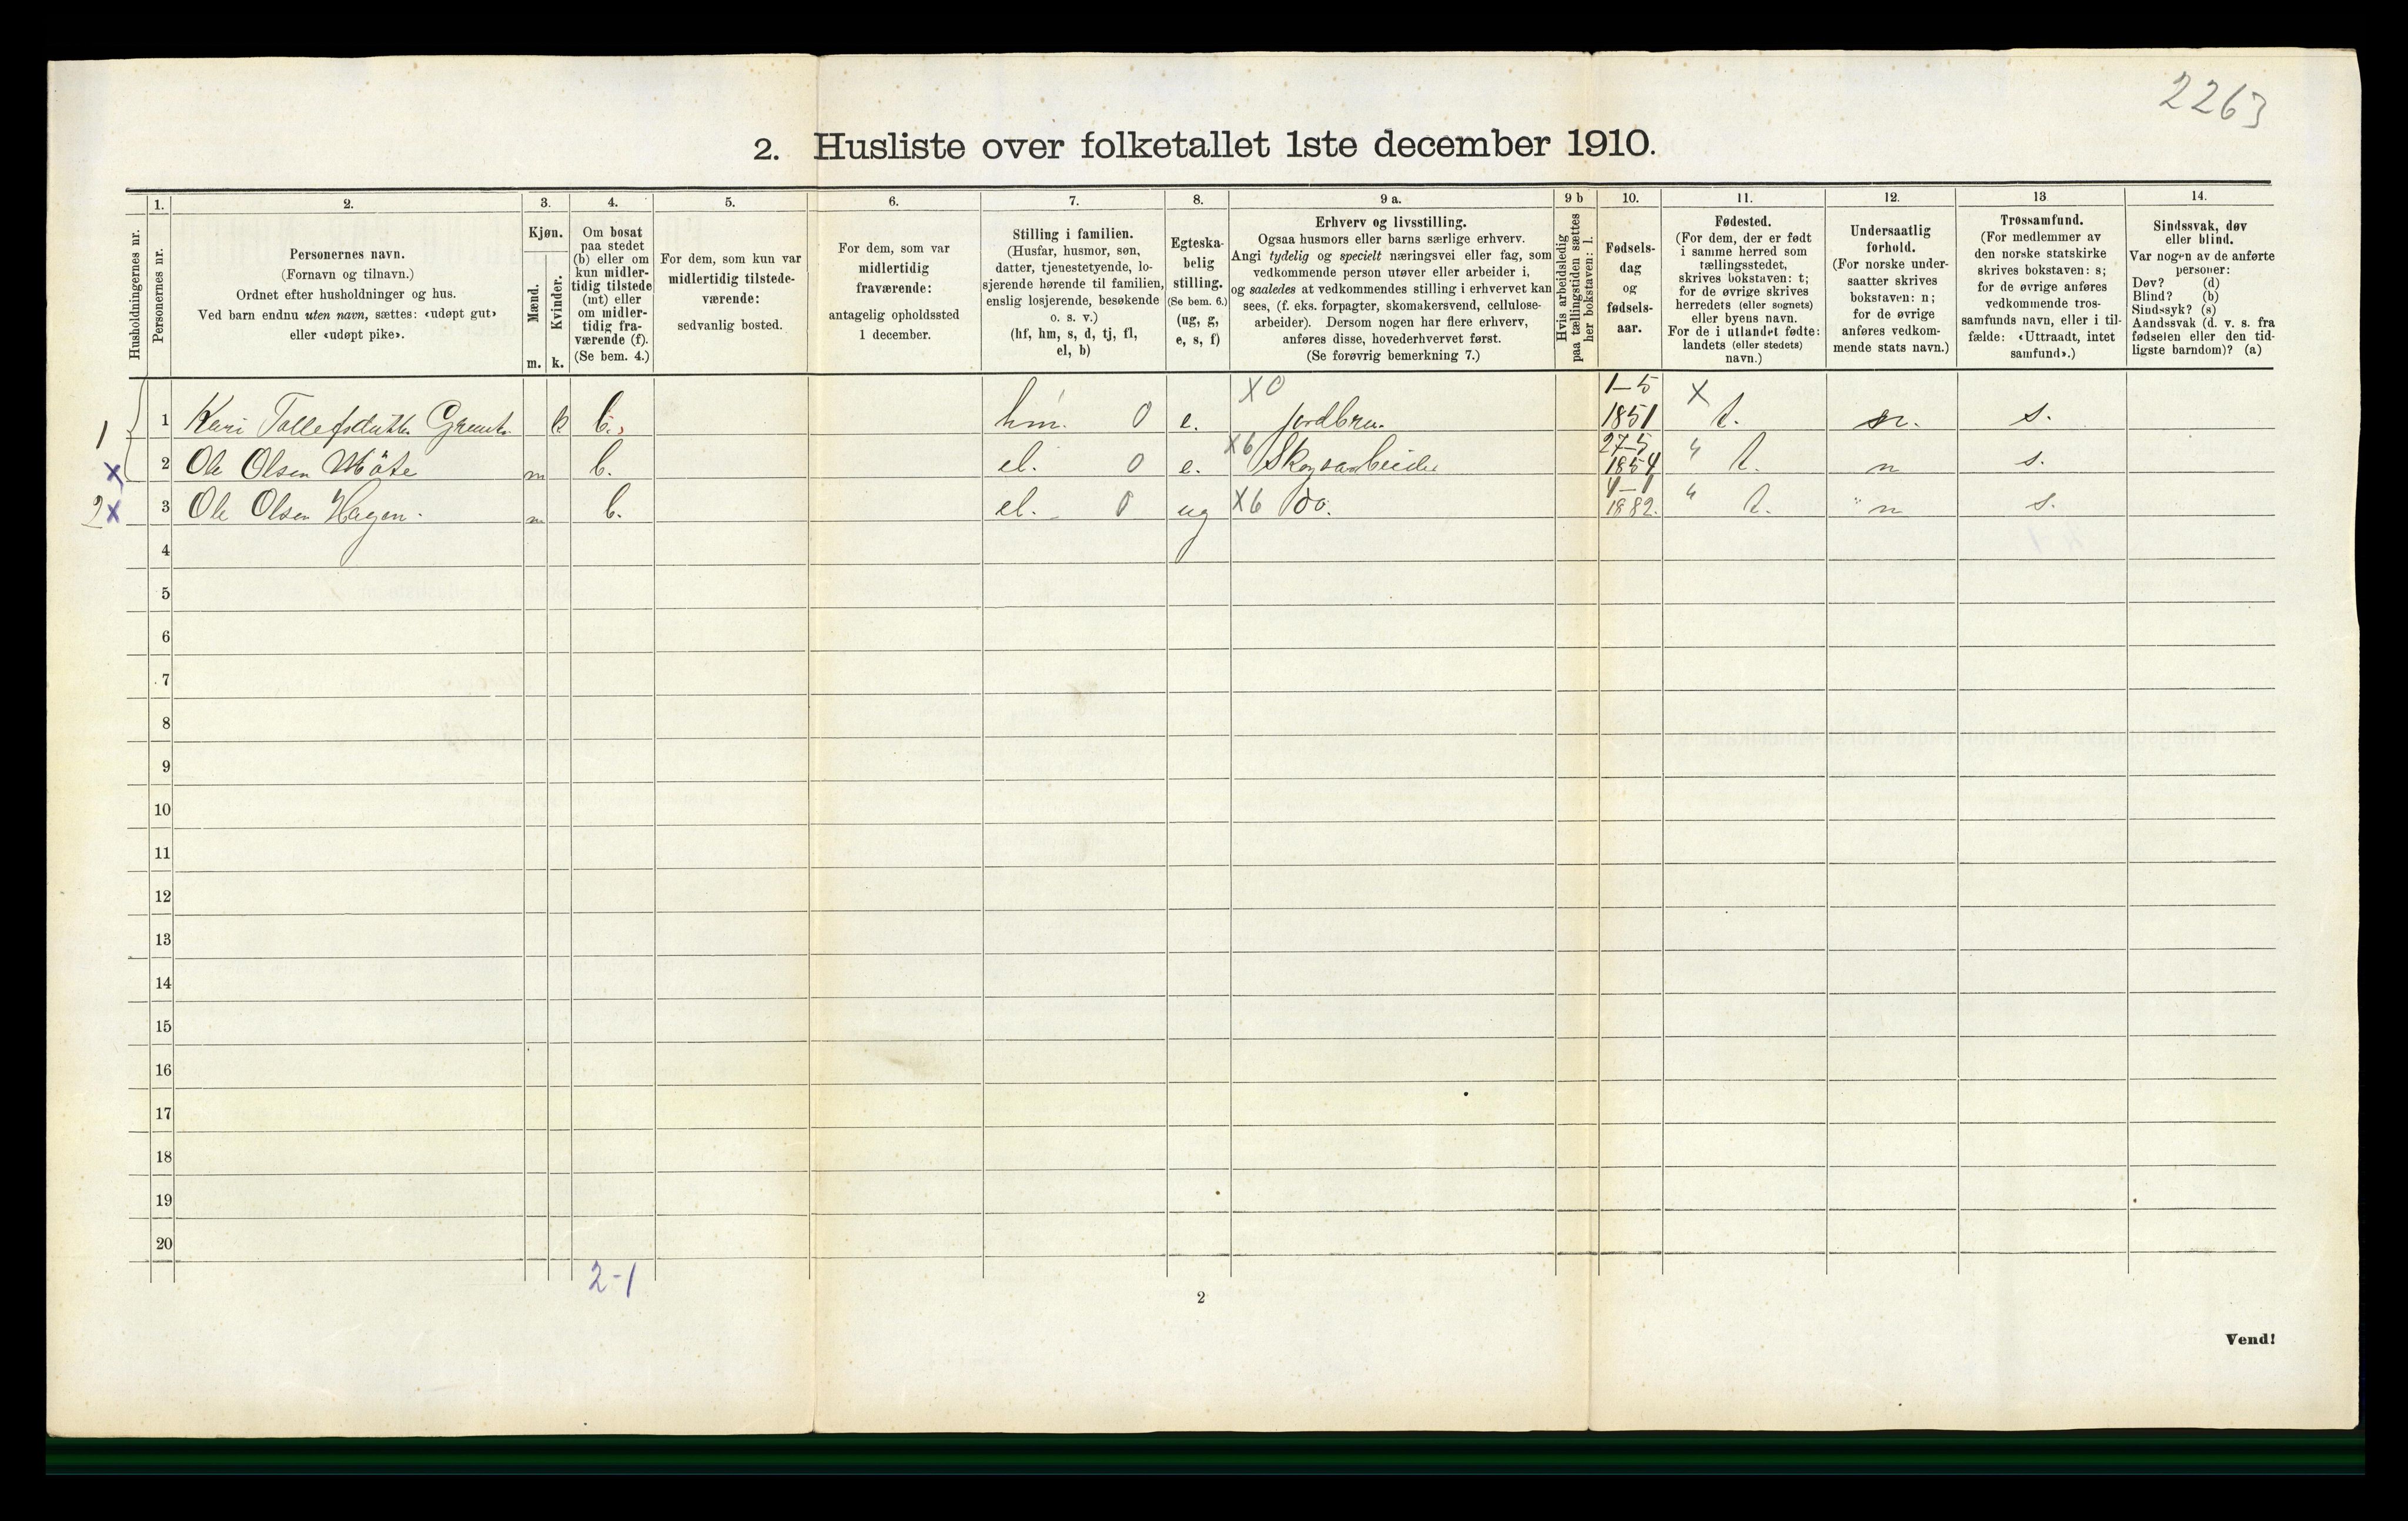 2263
2. Husliste over folketallet 1ste december 1910.
Husholdningernes nr.
1.
Personernes nr.
2.
Personernes navn.
(Fornavn og tilnavn.)
Ordnet efter husholdninger og hus.
Ved barn endnu uten navn, sættes: «udøpt gut»
eller «udøpt pike».
3.
Kjøn.
Mænd.
Kvinder.
m. k.
4.
Om bosat
paa stedet
(b) eller om
kun midler-
tidig tilstede
(mt) eller
om midler-
tidig fra-
værende (f).
(Se bem. 4.)
5.
For dem, som kun var
midlertidig tilstede-
værende:
sedvanlig bosted.
6.
For dem, som var
midlertidig
fraværende:
antagelig opholdssted
1 december.
7.
Stilling i familien.
(Husfar, husmor, søn,
datter, tjenestetyende, lo-
sjerende hørende til familien,
enslig losjerende, besøkende
o. s. v.)
(hf, hm, s, d, tj, fl,
el, b)
8.
Egteska-
belig
stilling.
(Se bem. 6.)
(ug, g,
e, s, f)
9 a.
Erhverv og livsstilling.
Ogsaa husmors eller barns særlige erhverv.
Angi tydelig og specielt næringsvei eller fag, som
vedkommende person utøver eller arbeider i,
og saaledes at vedkommendes stilling i erhvervet kan
sees, (f. eks. forpagter, skomakersvend, cellulose-
arbeider). Dersom nogen har flere erhverv,
anføres disse, hovederhvervet først.
(Se forøvrig bemerkning 7.)
9 b
Hvis arbeidsledig
paa tællingstiden sættes
her bokstaven: l.
10.
Fødsels-
dag
og
fødsels-
aar.
11.
Fødested.
(For dem, der er født
i samme herred som
tællingsstedet,
skrives bokstaven: t;
for de øvrige skrives
herredets (eller sognets)
eller byens navn.
For de i utlandet fødte:
landets (eller stedets)
navn.)
12.
Undersaatlig
forhold.
(For norske under-
saatter skrives
bokstaven: n;
for de øvrige
anføres vedkom-
mende stats navn.)
13
Trossamfund.
(For medlemmer av
den norske statskirke
skrives bokstaven: s;
for de øvrige anføres
vedkommende tros-
samfunds navn, eller i til-
fælde: «Uttraadt, intet
samfund».)
14.
Sindssvak, døv
eller blind.
Var nogen av de anførte
personer:
Døv? (d)
Blind? (b)
Sindssyk? (s)
Aandssvak (d. v. s. fra
fødselen eller den tid-
ligste barndom)? (a)
1 1 Kari k b. hm. 0 e. X0 jordbru. 1-5 1851 X t. n. s.
X 2 Ole Olsen m b. el. 0 e. X6 Skogsarbeider 27-5 1854 " t. n s.
2X 3 Ole Olsen Hagen. m b. el. 0 ug X6 do. 1882. " t. " n s.
4
5
6
7
8
9
10
11
12
13
14
15
16
17
18
19
20
2-1
2
Vend!